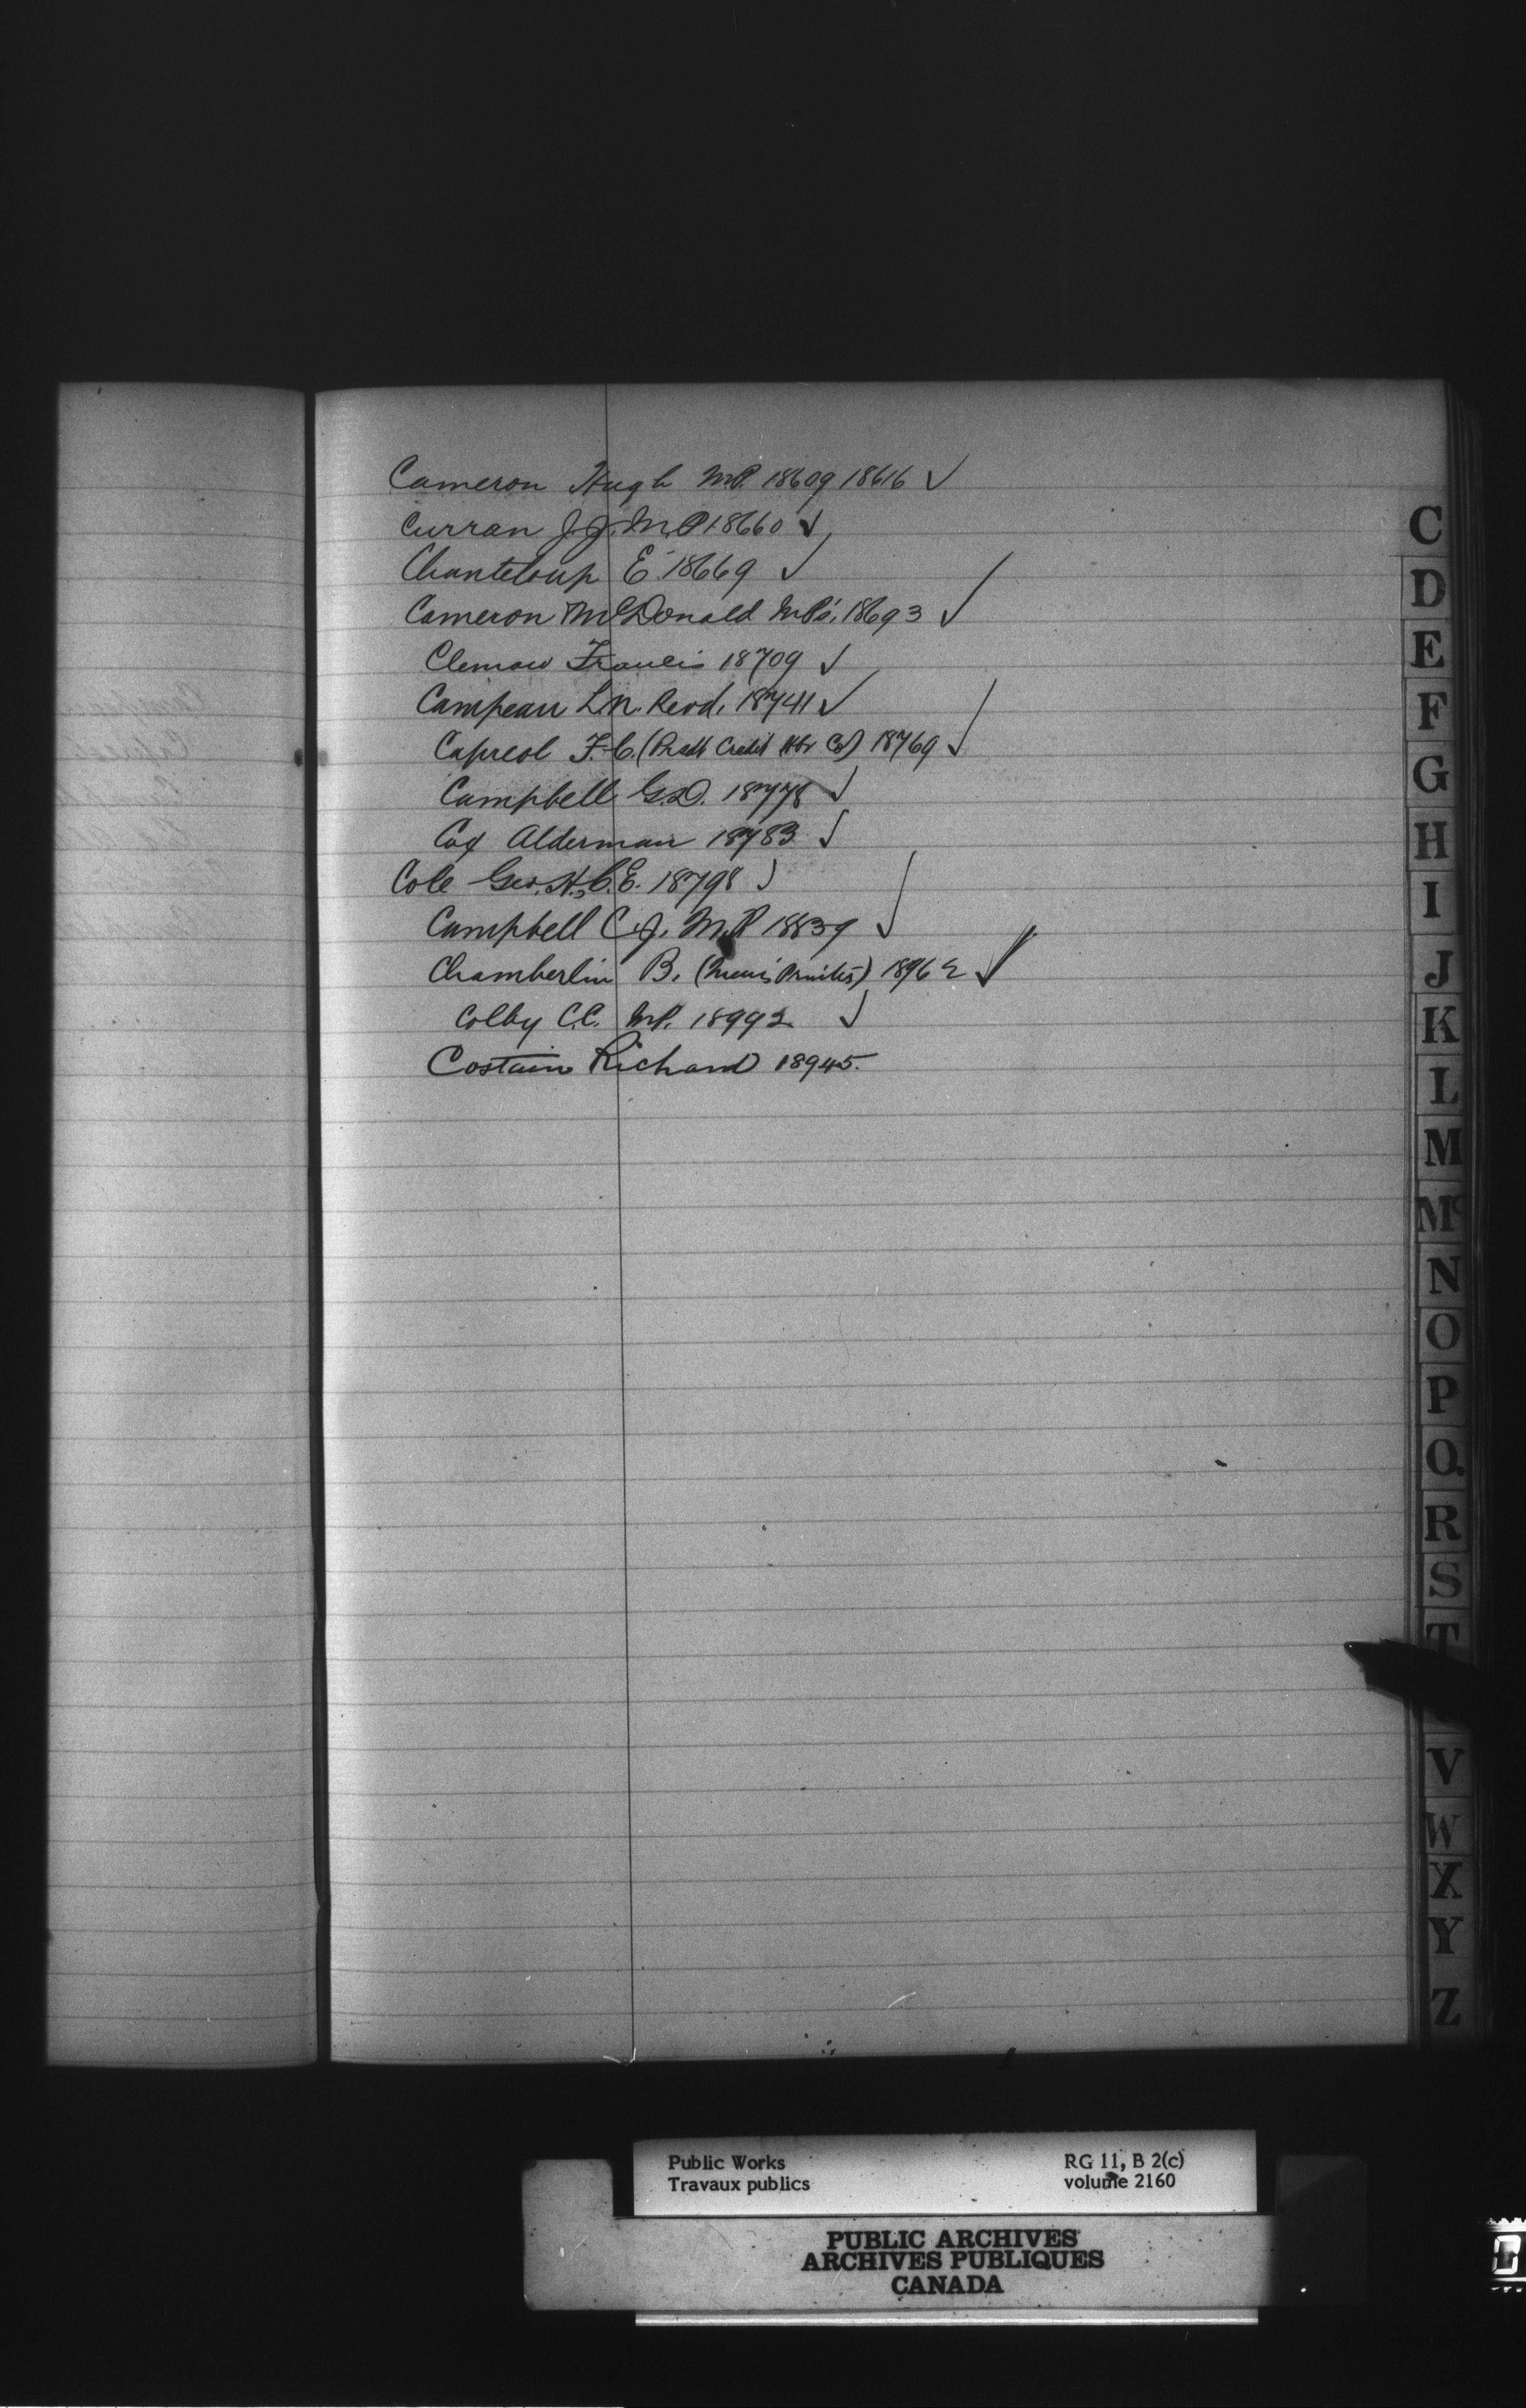 Cameron Hugh M.P. 18609 18616 ✓
Curran J.J. M.P 18660 ✓
Chanteloup E. 18669 ✓
Cameron McDonald M.P's. 18693 ✓
Clemow Francis 18709 ✓
Campeau L.N. Revd. 18741 ✓
Capreol F.C. (Credit Co) 18769 ✓
Campbell G.D. 18778 ✓
Cox Alderman 18783 ✓
Cole Geo. H., C.E. 18798 ✓
Campbell C.J. M.P 18839 ✓
Chamberlin B. (Printer) 18962 ✓
Colby C.C. M.P. 18992 ✓
Costain Richard 18945.
C
D
E
F
G
H
I
J
K
L
M
Mc
N
O
P
Q
R
S
T
V
W
X
Y
Z
Public Works
Travaux publics
RG 11, B 2(c)
volume 2160
PUBLIC ARCHIVES
ARCHIVES PUBLIQUES
CANADA